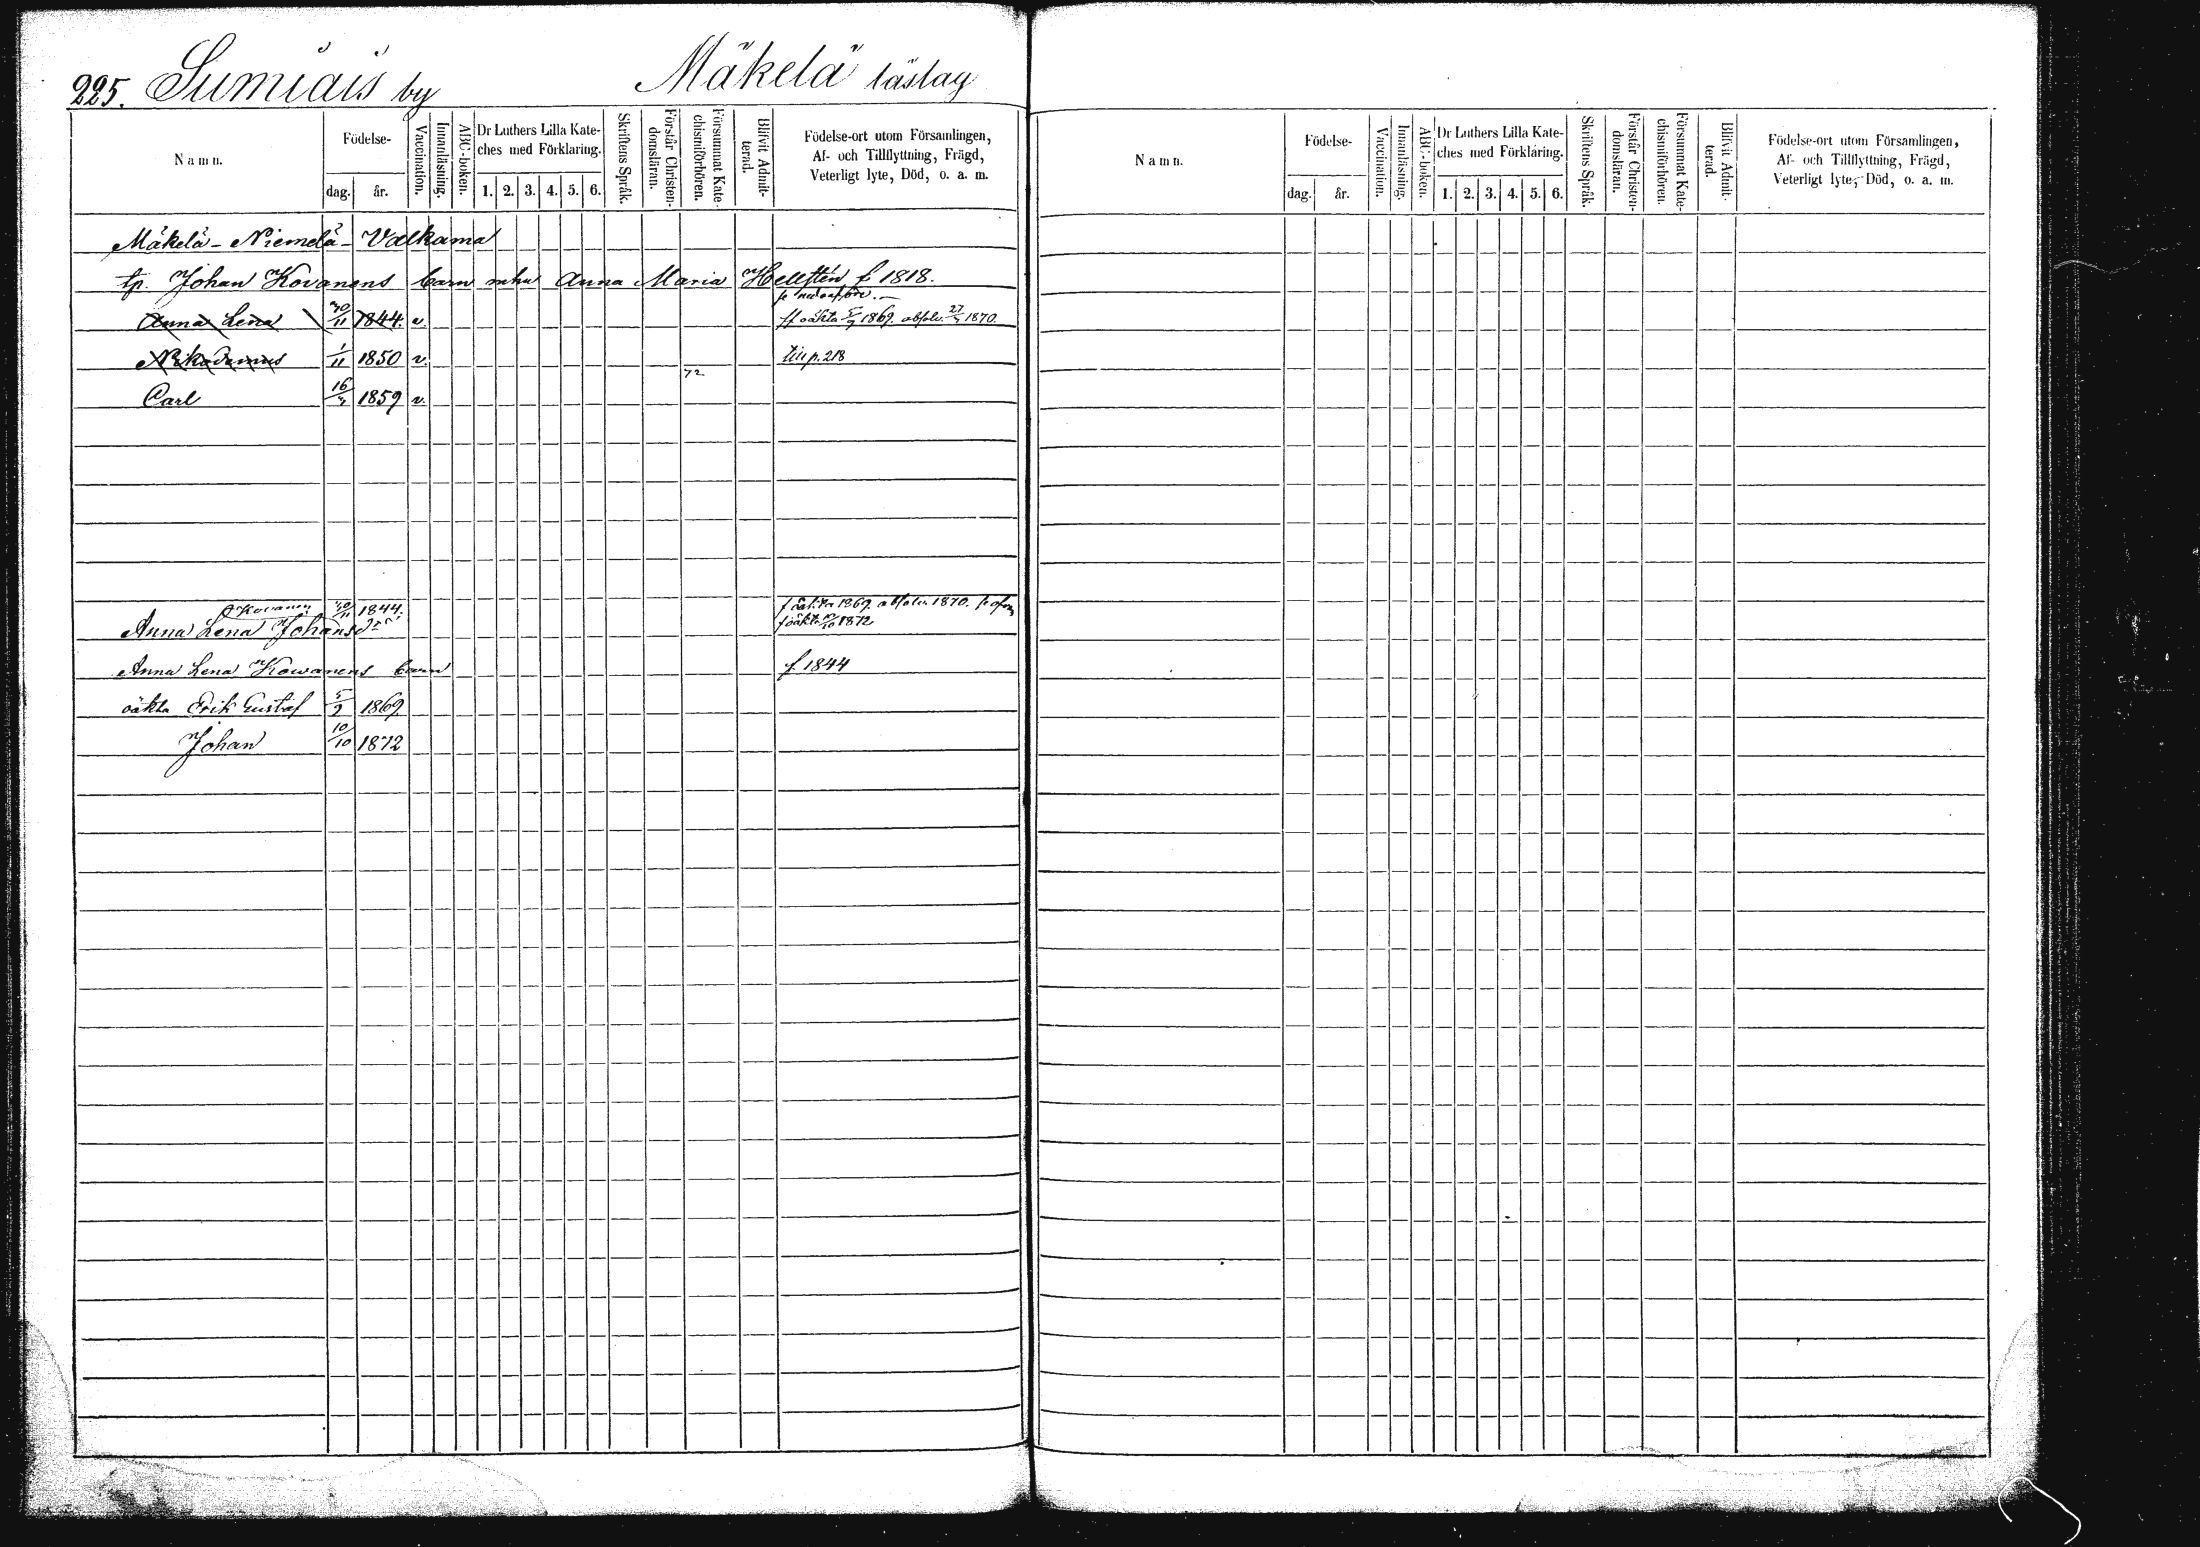 225. Sumiais by Mäkelä läslag
Namn. Födelse- dag. år. Vaccination. Innanläsning. ABC-boken. Dr Luthers Lilla Kate-ches med Förklaring. 1. 2. 3. 4. 5. 6. Skriftens Språk. Förstår Christen-domsläran. Försummat Kate-chismiförhören. Blifvit Admit-terad. Födelse-ort utom Församlingen, Af- och Tillflyttning, Frägd, Veterligt lyte, Död, o. a. m.
Mäkelä - Niemelä - Valkama
tp. Johan Kovanens barn mhu Anna Maria Hellstén f 1818.
Anna Lena 30/11 1844. v. oäkta 5/9 1869. absolv. 1870.
Nikodemus 1/11 1850 v. till p. 218
72
Carl 16/3 1859 v.
Kovanen 30/11 1844. f oäkta 1869. absolv. 1870.
Anna Lena Johansdr f oäkta 10/10 1872
Anna Lena Kowanens barn f. 1844
oäkta Erik Gustaf 5/9 1869
Johan 10/10 1872
Namn. Födelse- dag. år. Vaccination. Innanläsning. ABC-boken. Dr Luthers Lilla Kate-ches med Förklaring. 1. 2. 3. 4. 5. 6. Skriftens Språk. Förstår Christen-domsläran. Försummat Kate-chismiförhören. Blifvit Admit-terad. Födelse-ort utom Församlingen, Af- och Tillflyttning, Frägd, Veterligt lyte, Död, o. a. m.